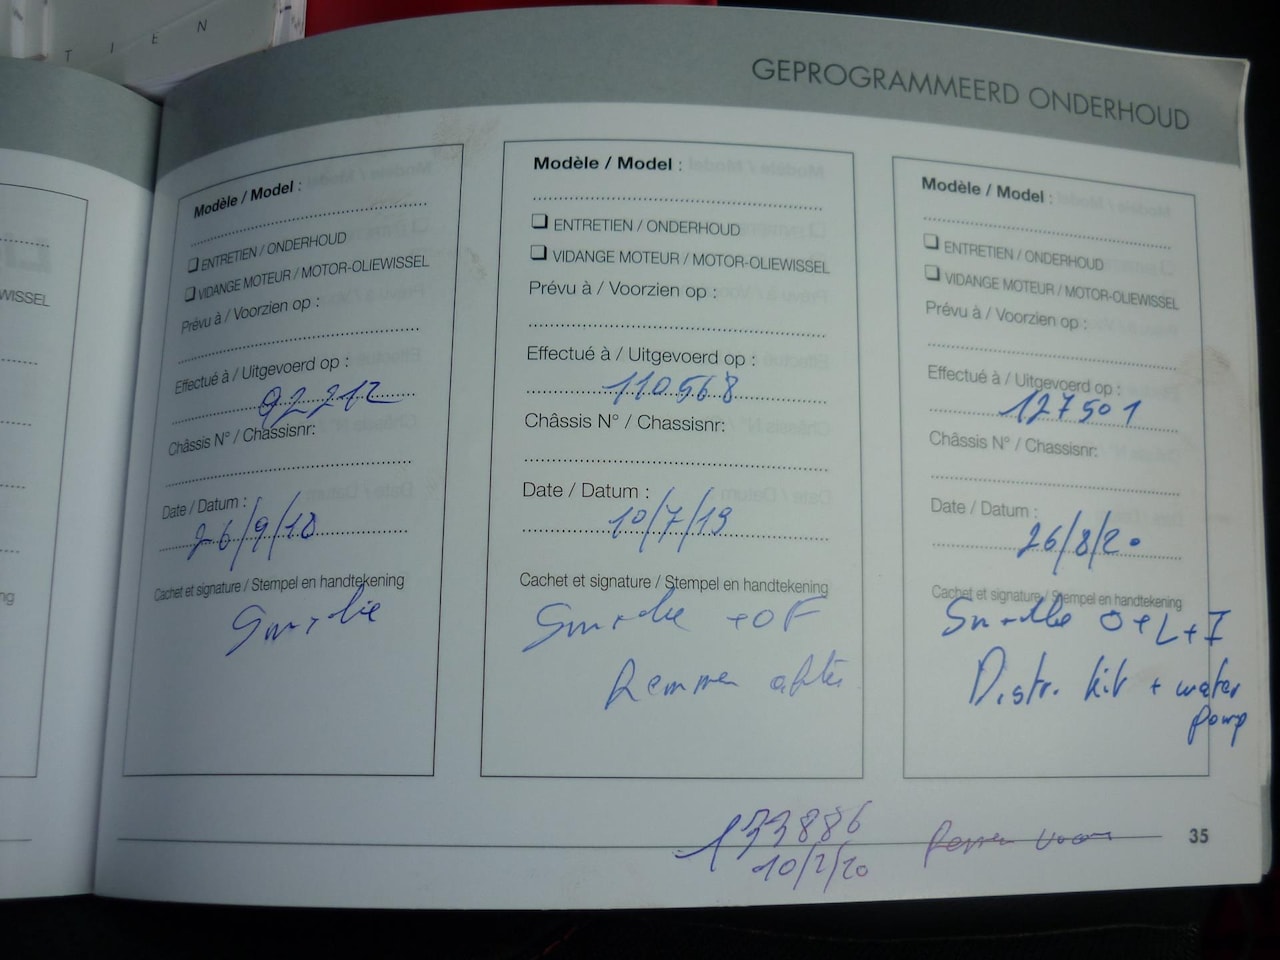 TIEN
GEPROGRAMMEERD ONDERHOUD
WISSEL
ng
Modèle / Model :
❑ ENTRETIEN / ONDERHOUD
❑ VIDANGE MOTEUR / MOTOR-OLIEWISSEL
Prévu à / Voorzien op :
Effectué à / Uitgevoerd op :
92212
Châssis N° / Chassisnr:
Date / Datum :
26/9/18
Cachet et signature / Stempel en handtekening
Modèle / Model :
❑ ENTRETIEN / ONDERHOUD
❑ VIDANGE MOTEUR / MOTOR-OLIEWISSEL
Prévu à / Voorzien op :
Effectué à / Uitgevoerd op :
110568
Châssis N° / Chassisnr:
Date / Datum :
10/7/19
Cachet et signature / Stempel en handtekening
+ OF
Remmen
Modèle / Model :
❑ ENTRETIEN / ONDERHOUD
❑ VIDANGE MOTEUR / MOTOR-OLIEWISSEL
Prévu à / Voorzien op :
Effectué à / Uitgevoerd op :
127501
Châssis N° / Chassisnr:
Date / Datum :
26/8/20
Cachet et signature / Stempel en handtekening
O+L+I
Distr. kit + water
pomp
133886
10/2/20
Remmen voor
35